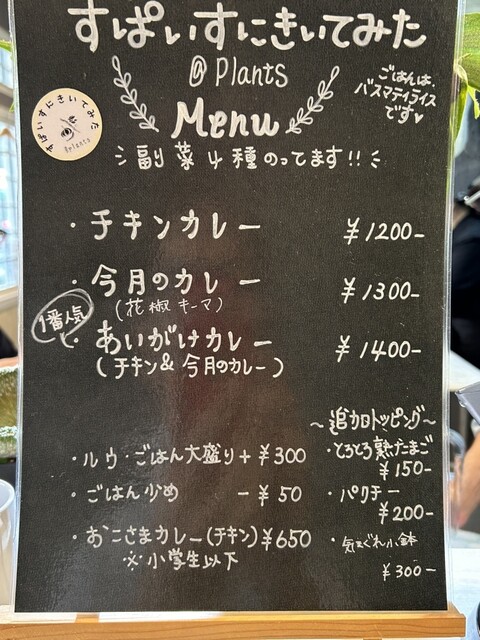 すぱいすにきいてみた
@Plants
Menu
ごはんは
バスマティライス
です♥
すぱいすにきいてみた
@plants
副菜4種のってます!!
・チキンカレー ¥1200-
・今月のカレー ¥1300-
(花椒キーマ)
1番人気
・あいがけカレー ¥1400-
(チキン&今月のカレー)
・ルウ・ごはん大盛り+¥300
・ごはん少め -¥50
・おこさまカレー(チキン)¥650
※小学生以下
〜追加トッピング〜
・とろとろ熟たまご
¥150-
・パクチー
¥200-
・気まぐれ小鉢
¥300-